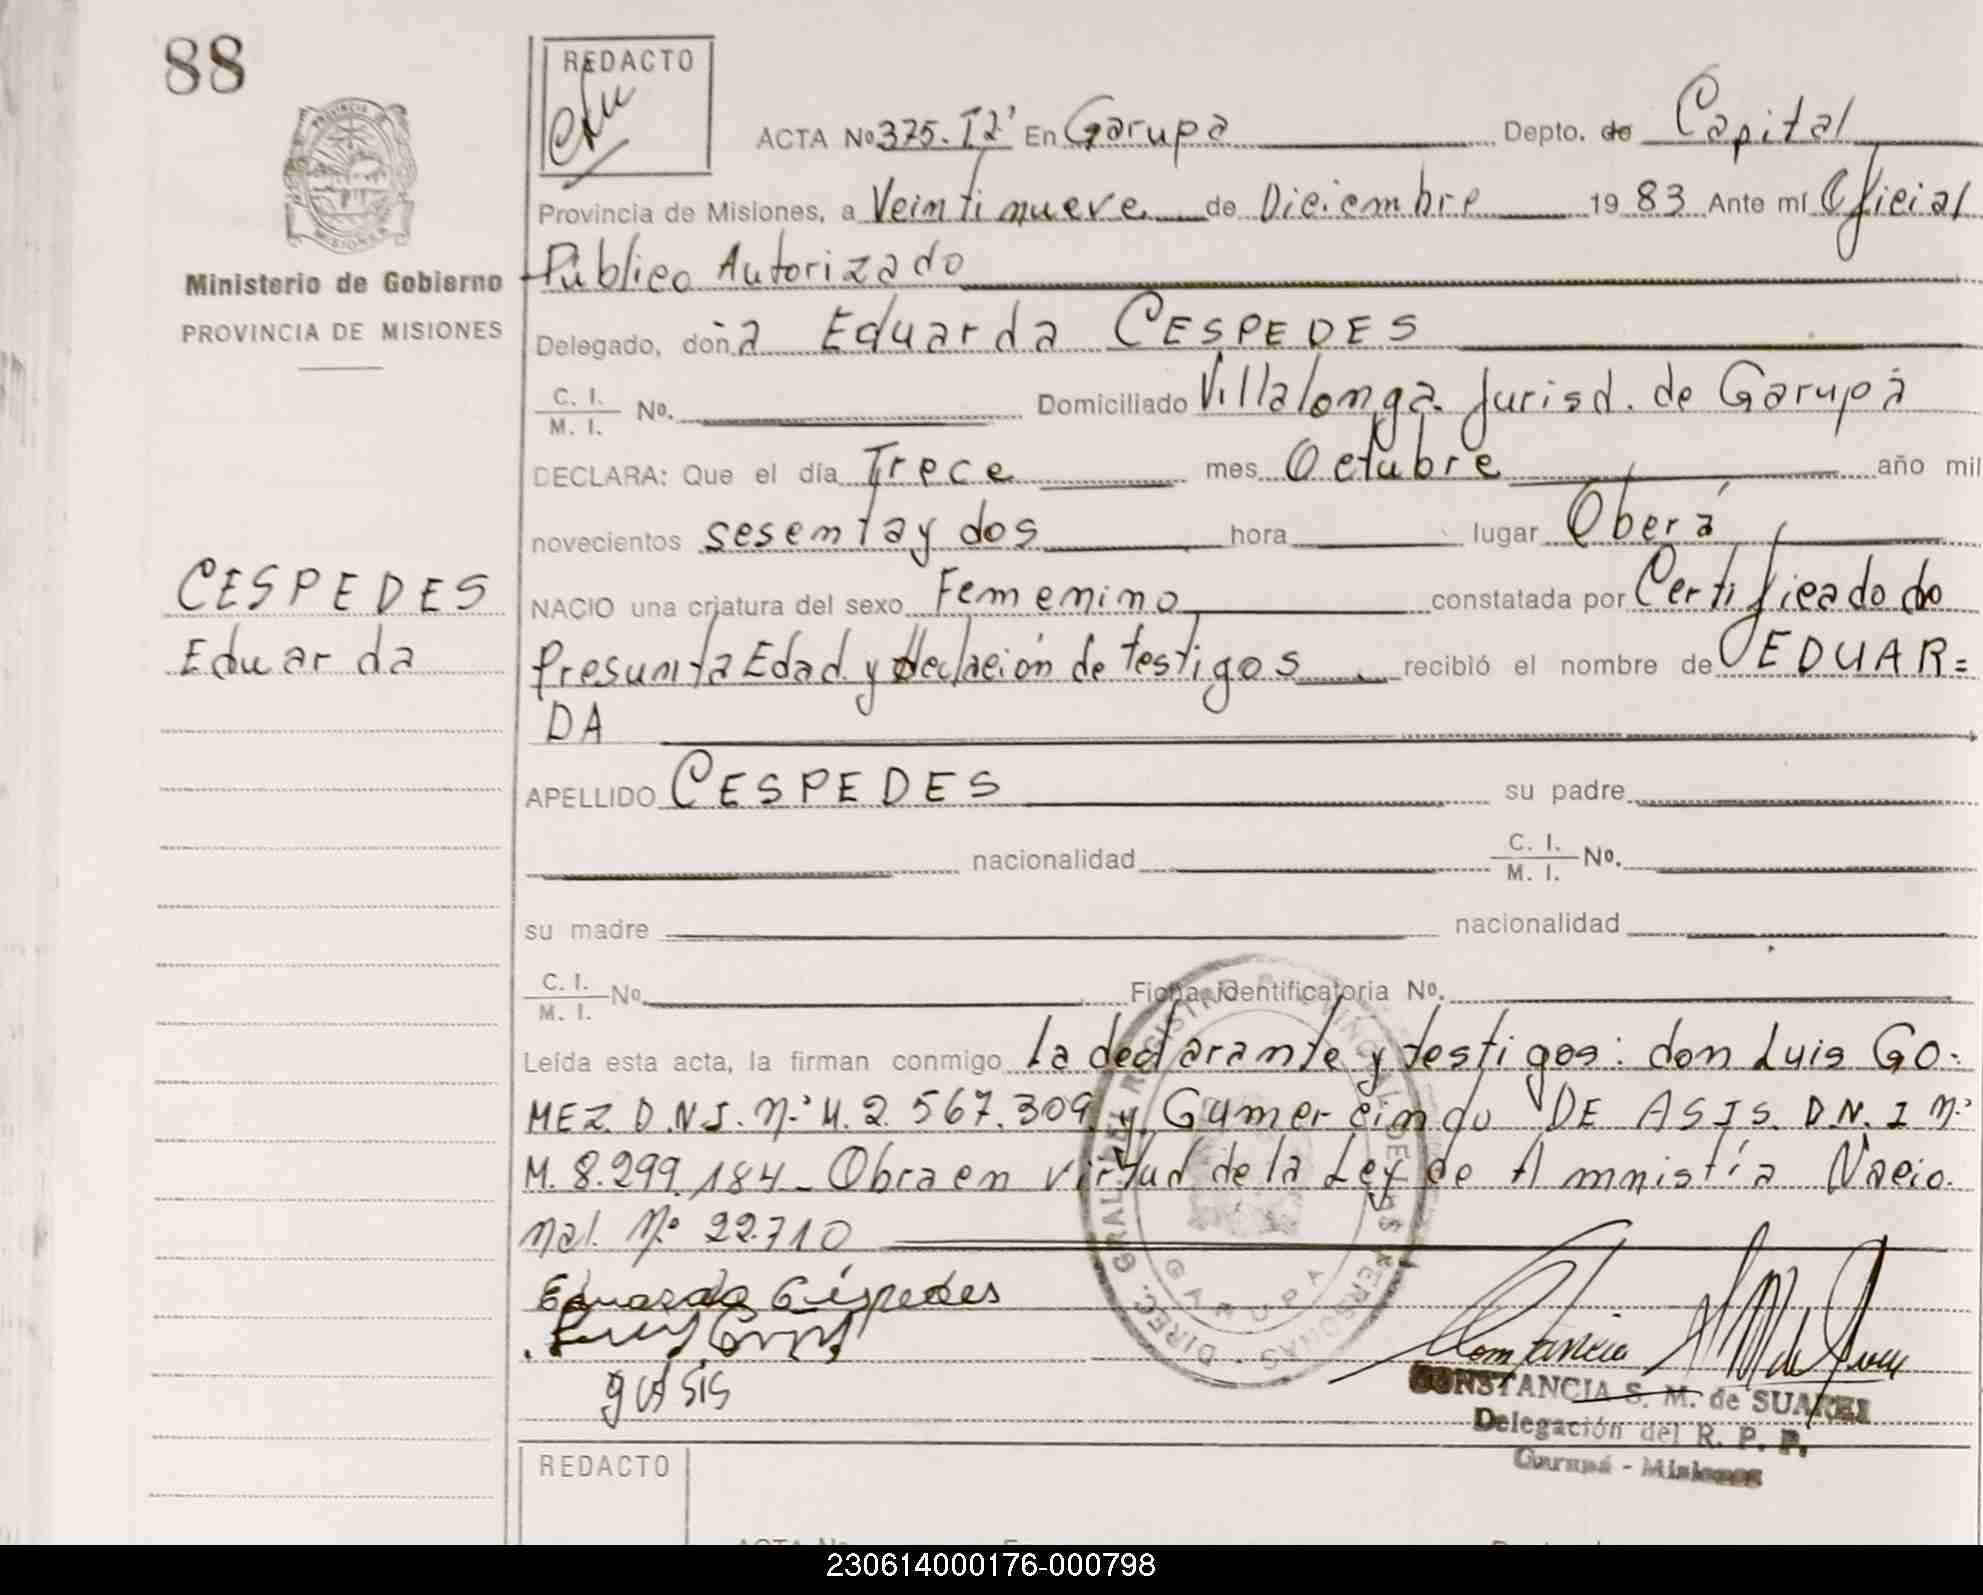 88
REDACTO
PROVINCIA DE
MISIONES
Ministerio de Gobierno
PROVINCIA DE MISIONES
CESPEDES
Eduarda
ACTA Nº 375. T2º En Garupa Depto. de Capital
Provincia de Misiones, a Veintinueve de Diciembre 1983 Ante mí Oficial
Público Autorizado
Delegado, doña Eduarda CESPEDES
C. I.
M. I. Nº. Domiciliado Villalonga. Jurisd. de Garupá
DECLARA: Que el día Trece mes Octubre año mil
novecientos sesenta y dos hora lugar Oberá
NACIO una criatura del sexo Femenino constatada por Certificado de
Presunta Edad y declación de testigos recibió el nombre de EDUAR=
DA
APELLIDO CESPEDES su padre
nacionalidad C. I.
M. I. Nº.
su madre nacionalidad
C. I.
M. I. Nº. Ficha identificatoria Nº.
Leída esta acta, la firman conmigo la declarante y testigos: don Luis GO-
MEZ. D.N.I. Nº M. 2.567.309. y Gumercindo DE ASIS. D.N.I Nº
M. 8.299.184_ Obra en virtud de la Ley de Amnistía Nacio.
nal. Nº 22.710
Eduarda Céspedes
g asis
DIREC. GRAL. DEL REGISTRO PROVINCIAL DE LAS PERSONAS
GARUPA
CONSTANCIA S. M. de SUAREZ
Delegación del R. P. P.
Garupá - Misiones
REDACTO
230614000176-000798